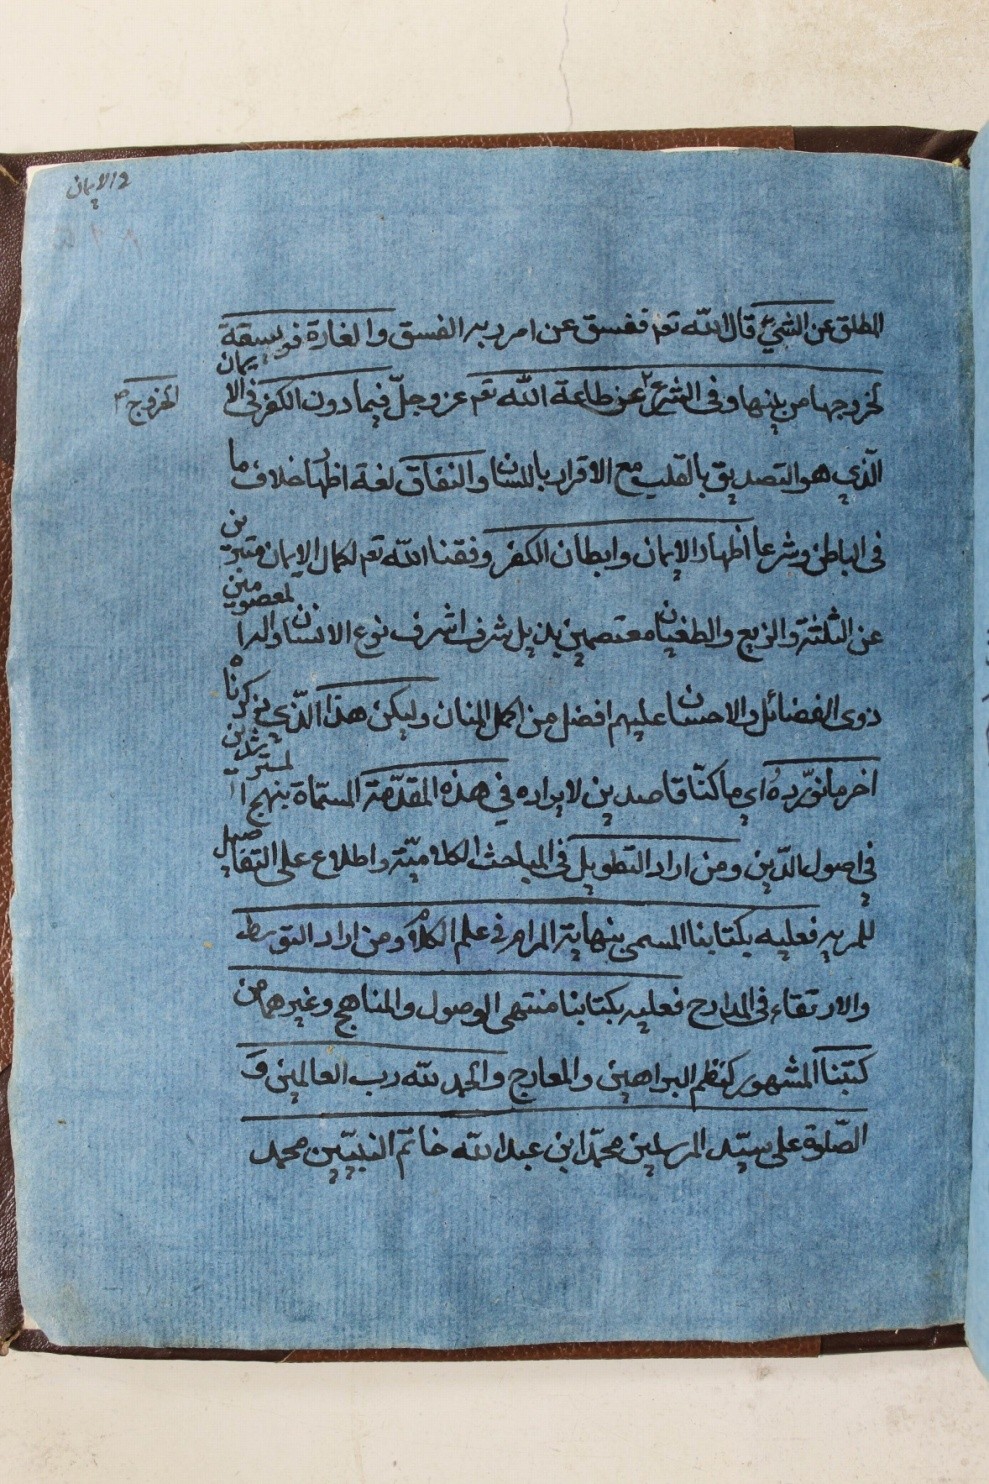 والايمان
المطلق عن الشيئ قال الله تعم ففسق عن امر ربه الفسق والفارة فويسقة
لخروجها من بيتها وفي الشرع عن طاعة الله تعم عز وجلّ فيما دون الكفر في الايمان
الخروج ص
الّذي هو التصديق بالقلب مع الاقرار باللسان والنفاق لغة اظهار خلاف ما
في الباطن وشرعا اظهار الايمان وابطان الكفر وفقنا الله تعم لكمال الايمان متبرين
عن الثلثة والزيغ والطغيان معتصمين بذيل شرف اشرف نوع الانسان والبرأ المعصومين
ذوى الفضائل والاحسان عليهم افضل من اكمل المنان وليكن هذا الّذي ذكرناه
اخر ما نورّده اي ما كنّا قاصدين لايراده في هذه المقدّمة المسمّاة بنهج المسترشدين
في اصول الدّين ومن اراد التطويل في المباحث الكلاميّة واطلاع على التفاصيل
للمريد فعليه بكتابنا المسمى بنهاية المرام في علم الكلام ومن اراد التوسط
والارتقاء في المدارج فعليه بكتابنا منتهى الوصول والمناهج وغيرهما من
كتبنا المشهور كنظم البراهين والمعارج والحمد لله رب العالمين وَ
الصّلوة على سيّد المرسلين محمّد ابن عبد الله خاتم النبيّين محمد